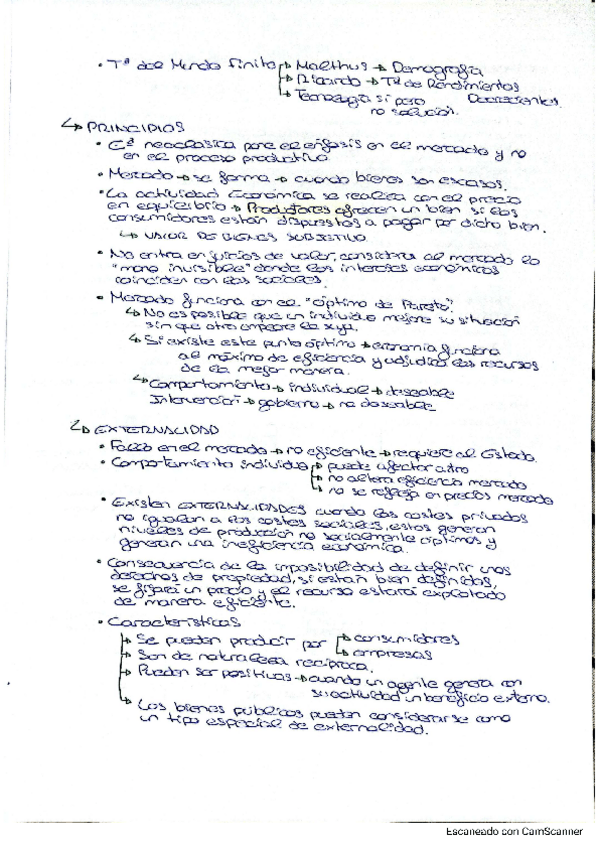 • Tª del Mundo finito → Malthus → Demografía
→ Ricardo → Tª de Rendimientos Decrecientes.
→ Tecnología sí pero no solución.
↳ PRINCIPIOS
• Eª neoclásica pone el énfasis en el mercado y no
en el proceso productivo.
• Mercado → se forma → cuando bienes son escasos.
• La actividad Económica se realiza con el precio
en equilibrio → Productores ofrecen un bien si los
consumidores están dispuestos a pagar por dicho bien.
↳ VALOR DE BIENES SUBJETIVO.
• No entra en juicios de valor, considera al mercado la
"mano invisible" donde los intereses económicos
coinciden con los sociales.
• Mercado funciona con el "óptimo de Pareto".
↳ No es posible que un individuo mejore su situación
sin que otro empeore la suya.
↳ Si existe este punto óptimo → economía funciona
al máximo de eficiencia y adjudica los recursos
de la mejor manera.
↳ Comportamiento → individual → deseable
Intervención → gobierno → no deseable
↳ EXTERNALIDAD
• Fallo en el mercado → no eficiente → requiere al Estado.
• Comportamiento individuo → puede afectar a otro
→ no altera eficiencia mercado
→ no se refleja en precios mercado
• Existen EXTERNALIDADES cuando los costes privados
no igualan a los costes sociales, estos generan
niveles de producción no socialmente óptimos y
generan una ineficiencia económica.
• Consecuencia de la imposibilidad de definir unos
derechos de propiedad, si están bien definidos,
se fijará un precio y el recurso estará explotado
de manera eficiente.
• Características
→ Se pueden producir por → consumidores
→ empresas
→ Son de naturaleza recíproca.
→ Pueden ser positivas → cuando un agente genera con
su actividad un beneficio externo.
→ Los bienes públicos pueden considerarse como
un tipo especial de externalidad.
Escaneado con CamScanner